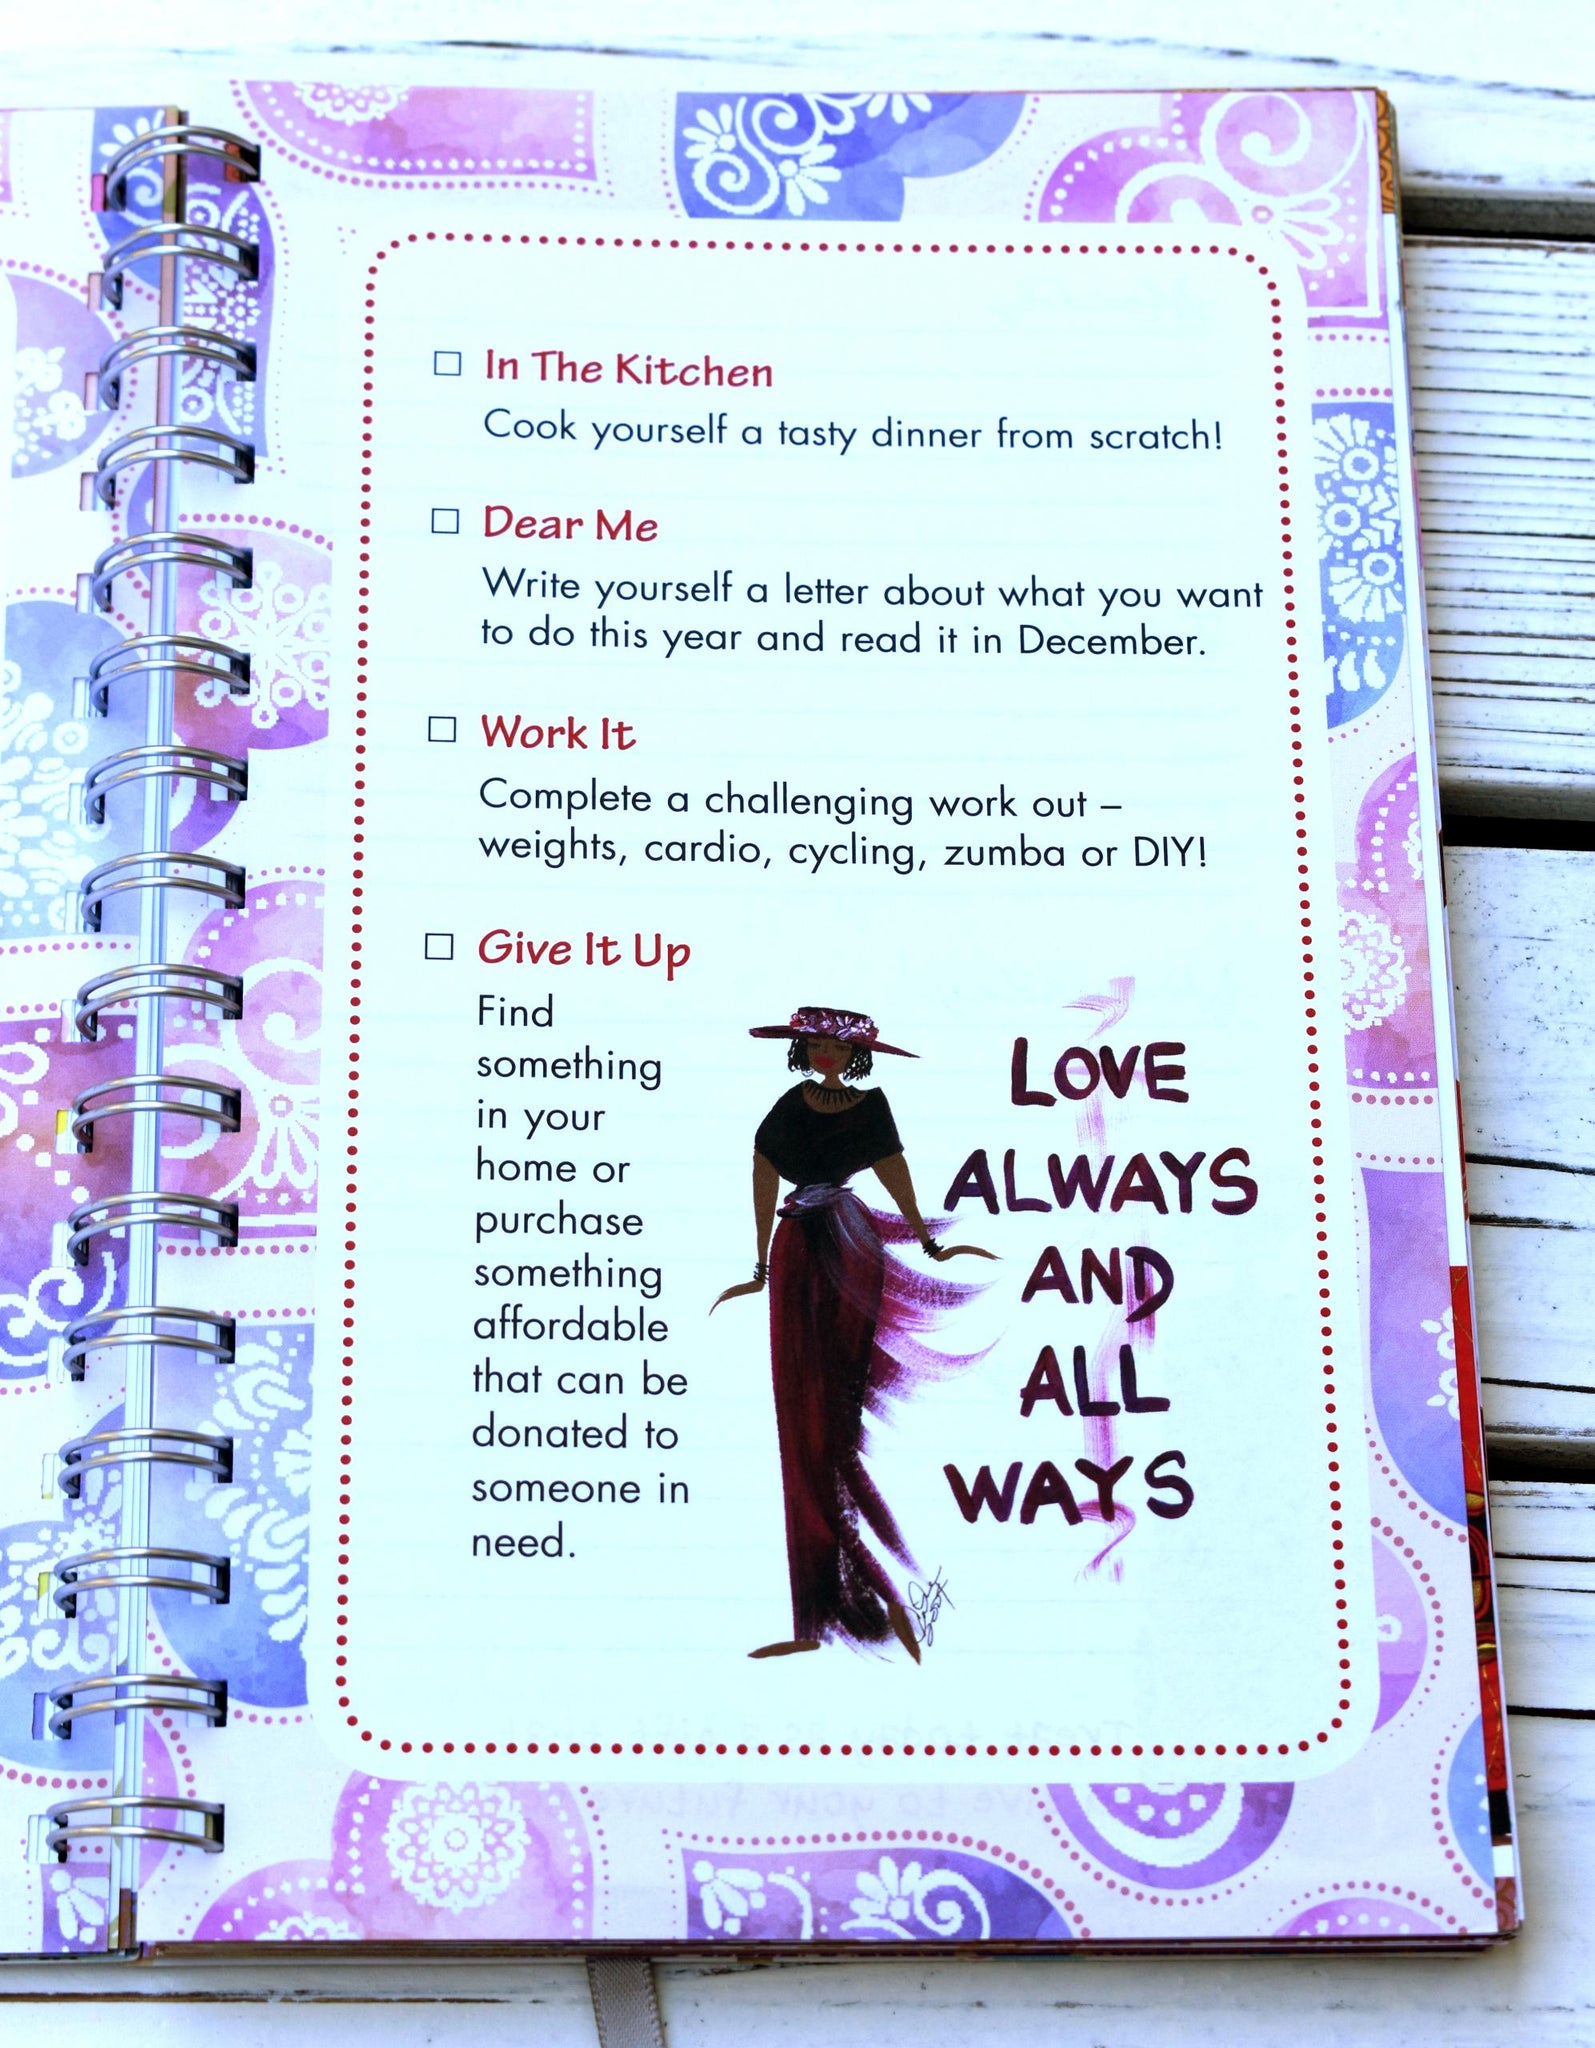 In The Kitchen
Cook yourself a tasty dinner from scratch!
Dear Me
Write yourself a letter about what you want
to do this year and read it in December.
Work It
Complete a challenging work out –
weights, cardio, cycling, zumba or DIY!
Give It Up
Find
something
in your
home or
purchase
something
affordable
that can be
donated to
someone in
need.
LOVE
ALWAYS
AND
ALL
WAYS